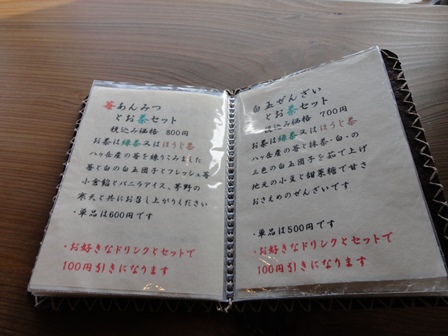 苺あんみつ
とお茶セット
税込み価格 800円
お茶は緑茶又はほうじ茶
八ヶ岳産の苺を練りこみました
苺と白の白玉団子とフレッシュ苺
小倉餡とバニラアイス、茅野の
寒天と共にお召し上がりください
・単品は600円です
・お好きなドリンクとセットで
100円引きになります
白玉ぜんざい
とお茶セット
税込み価格 700円
お茶は緑茶又はほうじ茶
八ヶ岳産の苺と抹茶・白・の
三色の白玉団子を茹で上げ
地元の小豆と甜菜糖で甘さ
おさえめのぜんざいです
・単品は500円です
・お好きなドリンクとセットで
100円引きになります